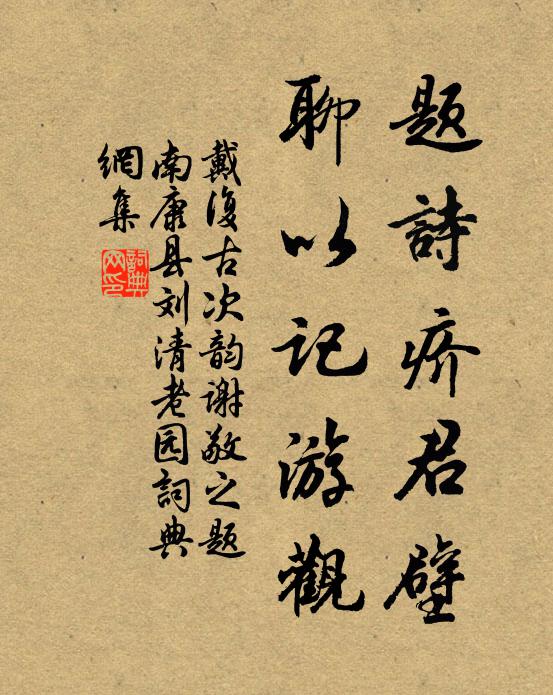 题詩疥君壁
聊以记游觀
戴復古次韵谢敬之题
南康县刘清老园詞典
網集
詞典
网印